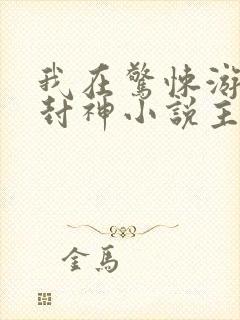 我在驚悚游
封神小說主
金馬